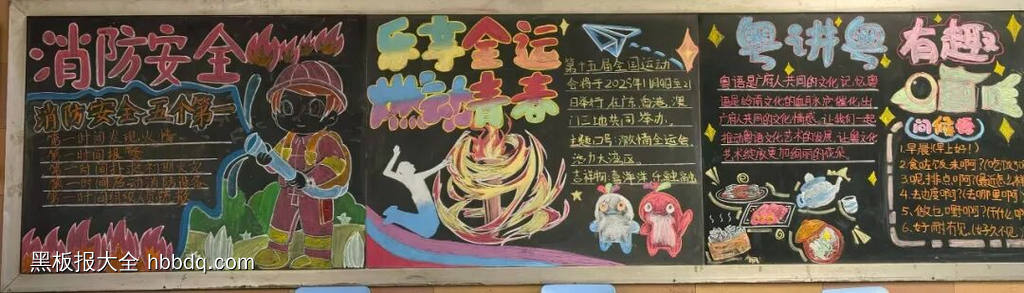 消防安全
消防安全五个第一
第一时间发现火情
第一时间报警
乐享全运
燃动青春
第十五届全国运动
会将于2025年11月9日至21
日举行,在广东、香港、澳
门三地共同举办。
主题口号:激情全运会,
活力大湾区。
吉祥物:喜洋洋、乐融融
粤讲粤有趣
粤语是广府人共同的文化记忆,粤
语是岭南文化的血肉
广府人共同的文化情感。让我们一起
推动粤语文化艺术的发展,让粤文化
艺术绽放更加绚丽的花朵。
问候语
1.早晨(早上好!)
2.食咗饭未啊?(吃饭
3.呢排点啊?(最近怎么样
4.去边度啊?(去哪里啊?
5.做乜嘢啊?(干什么
6.好耐冇见(好久不见
黑板报大全 hbbdq.com